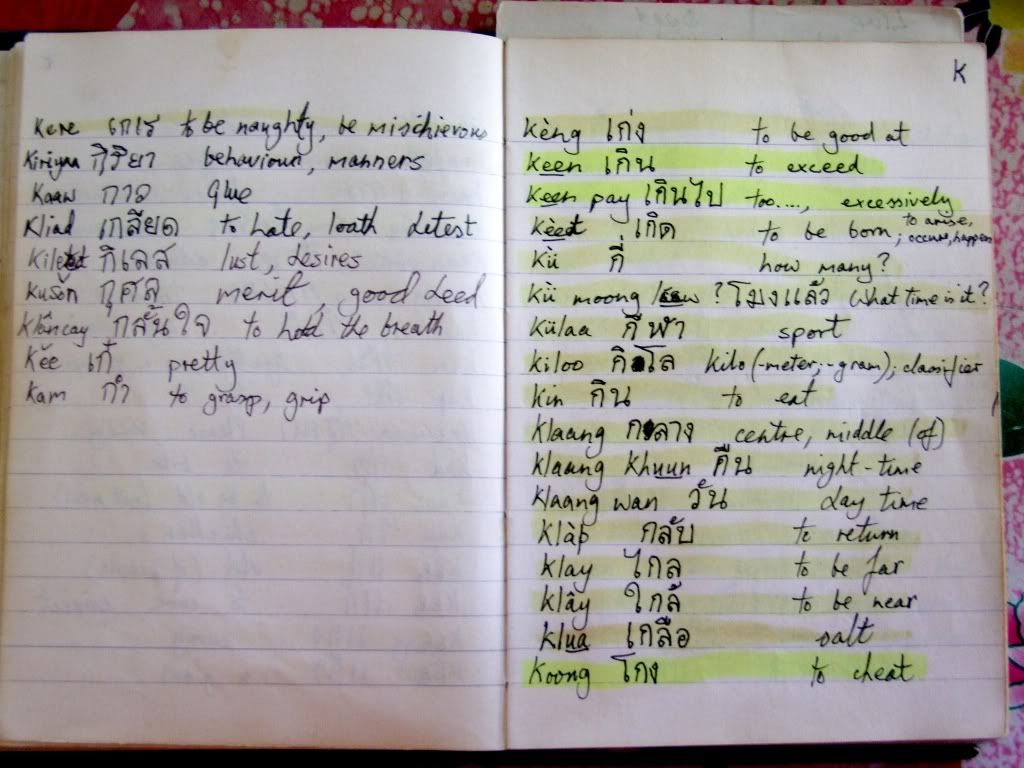 Kere เกเร to be naughty, be mischievous
Kiriyaa กิริยา behaviour, manners
Kaaw กาว Glue
Kliad เกลียด to hate, loath detest
กิเลส lust, desires
Kusǒn กุศล merit, good deed
Klâncay กลั้นใจ to hold the breath
Kěe เก๋ pretty
Kam กำ to grasp, grip
K
Kèng เก่ง to be good at
Keen เกิน to exceed
Keen pay เกินไป too...., excessively
Kèet เกิด to be born; to arise, occure, happen
Kìi กี่ how many?
Kìi moong ? โมงแล้ว What time is it?
Kiilaa กีฬา sport
Kiloo กิโล Kilo (-meter,-gram); classifier
Kin กิน to eat
Klaang กลาง centre, middle (of)
Klaang Khuun คืน night-time
Klaang wan วัน day time
Klàp กลับ to return
Klay ไกล to be far
Klây ใกล้ to be near
Klua เกลือ salt
Koong โกง to cheat